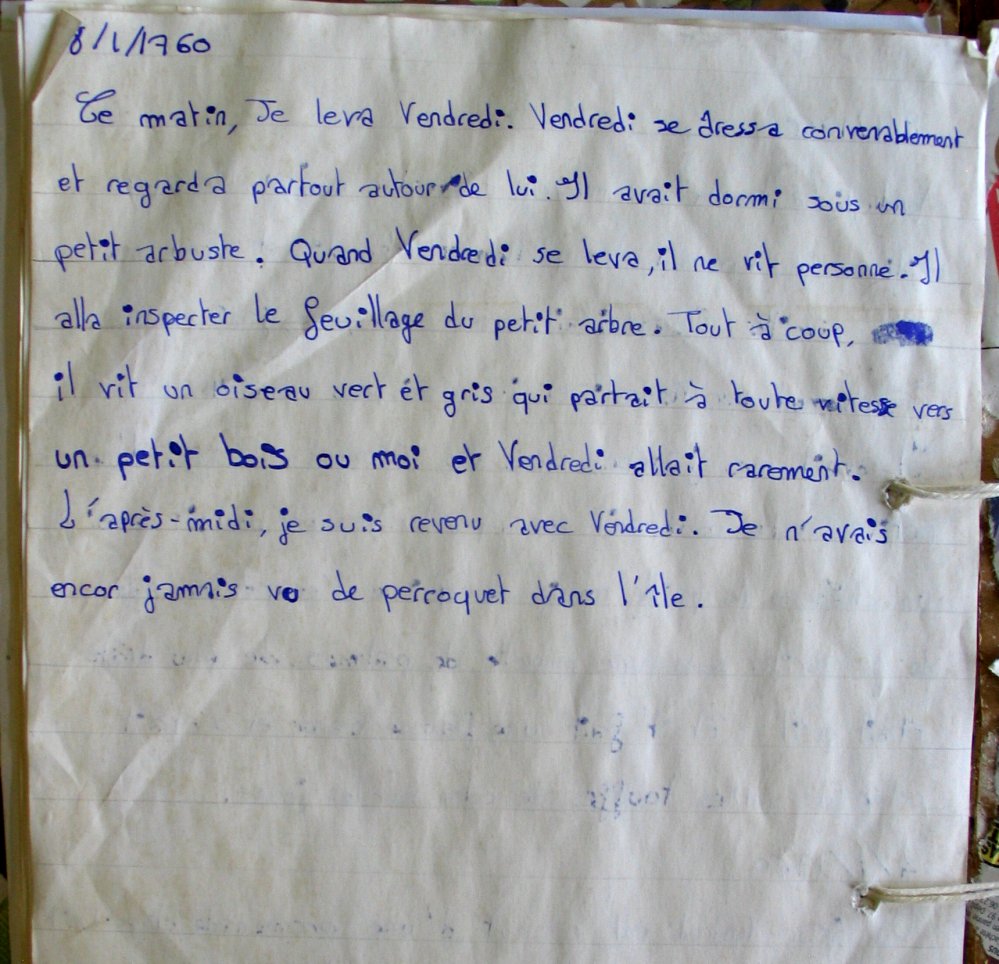 8/1/1760
Ce matin, Je leva Vendredi. Vendredi se dressa convenablement
et regarda partout autour de lui. Il avait dormi sous un
petit arbuste. Quand Vendredi se leva, il ne vit personne. Il
alla inspecter le feuillage du petit arbre. Tout à coup,
il vit un oiseau vert et gris qui partait à toute vitesse vers
un petit bois ou moi et Vendredi allait rarement.
L'après-midi, je suis revenu avec Vendredi. Je n'avais
encor jamais vu de perroquet dans l'île.